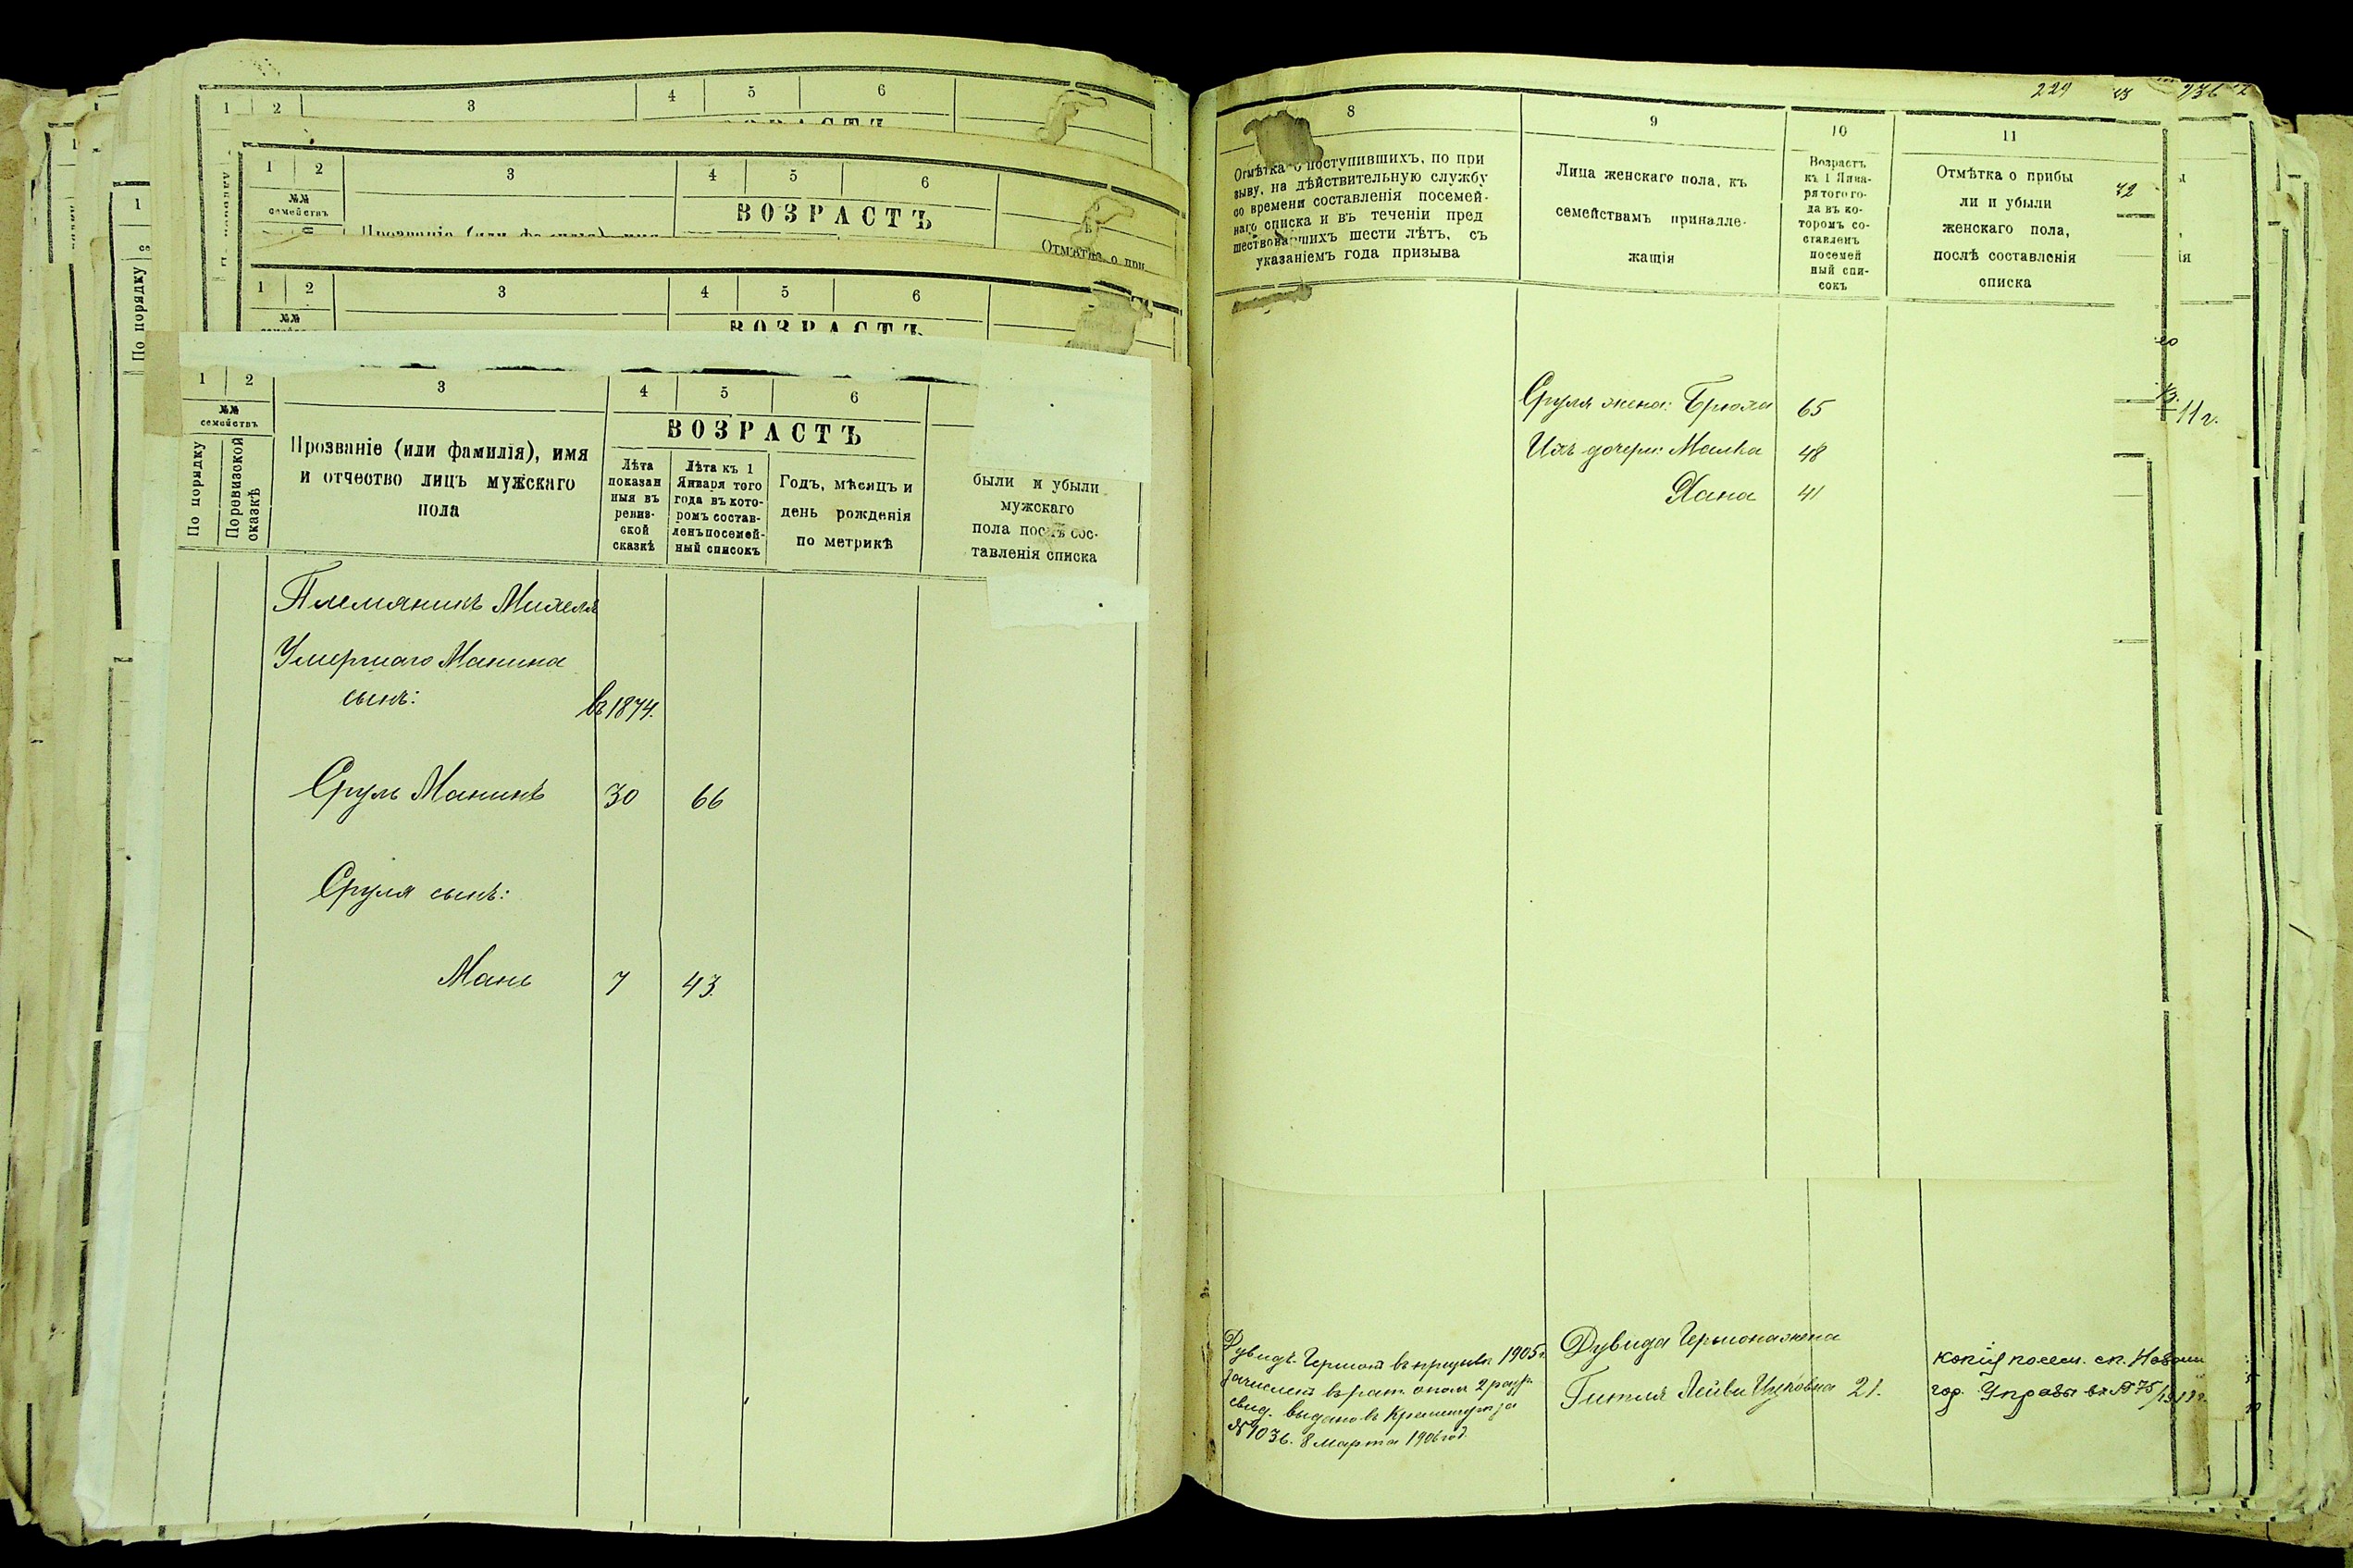 1 2 3 4 5 6
1 2 3 4 5 6
№№
семействъ
ВОЗРАСТЪ
Отмѣтка о при
1 2 3 4 5 6
№№
ВОЗРАСТЪ
1
По порядку
1 2 3 4 5 6
№№
семействъ
По порядку
По ревизской
сказкѣ
Прозваніе (или фамилія), имя
и отчество лицъ мужскаго
пола
ВОЗРАСТЪ
Лѣта
показан
ныя въ
ревиз-
ской
сказкѣ
Лѣта къ 1
Января того
года въ кото-
ромъ состав-
ленъ посемей-
ный списокъ
Годъ, мѣсяцъ и
день рожденія
по метрикѣ
были и убыли
мужскаго
пола послѣ сос-
тавленія списка
Племянникъ
Умершаго Манина
сынъ:
въ 1874.
Сруль Манинъ 30 66
Сруля сынъ:
Мань 7 43.
229
8 9 10 11
Отмѣтка о поступившихъ, по при
зыву, на дѣйствительную службу
со времени составленія посемей-
наго списка и въ теченіи пред
шествовавшихъ шести лѣтъ, съ
указаніемъ года призыва
Лица женскаго пола, къ
семействамъ принадле-
жащія
Возрастъ
къ 1 Янва-
ря того го-
да въ ко-
торомъ со-
ставленъ
посемей
ный спи-
сокъ
Отмѣтка о прибы
ли и убыли
женскаго пола,
послѣ составленія
списка
Сруля жена: 65
Ихъ дочери: Малка 48
Хана 41
11 г.
Дувидъ Гершонъ въ призывъ 1905 г.
зачисленъ въ рат. опол. 2 разр.
свид. выдано въ
8 Марта 1906 год.
Дувида Гершона жена
Гитля Лейви Ицковна 21.
копія посем. сп.
гор. Управы вх № 75